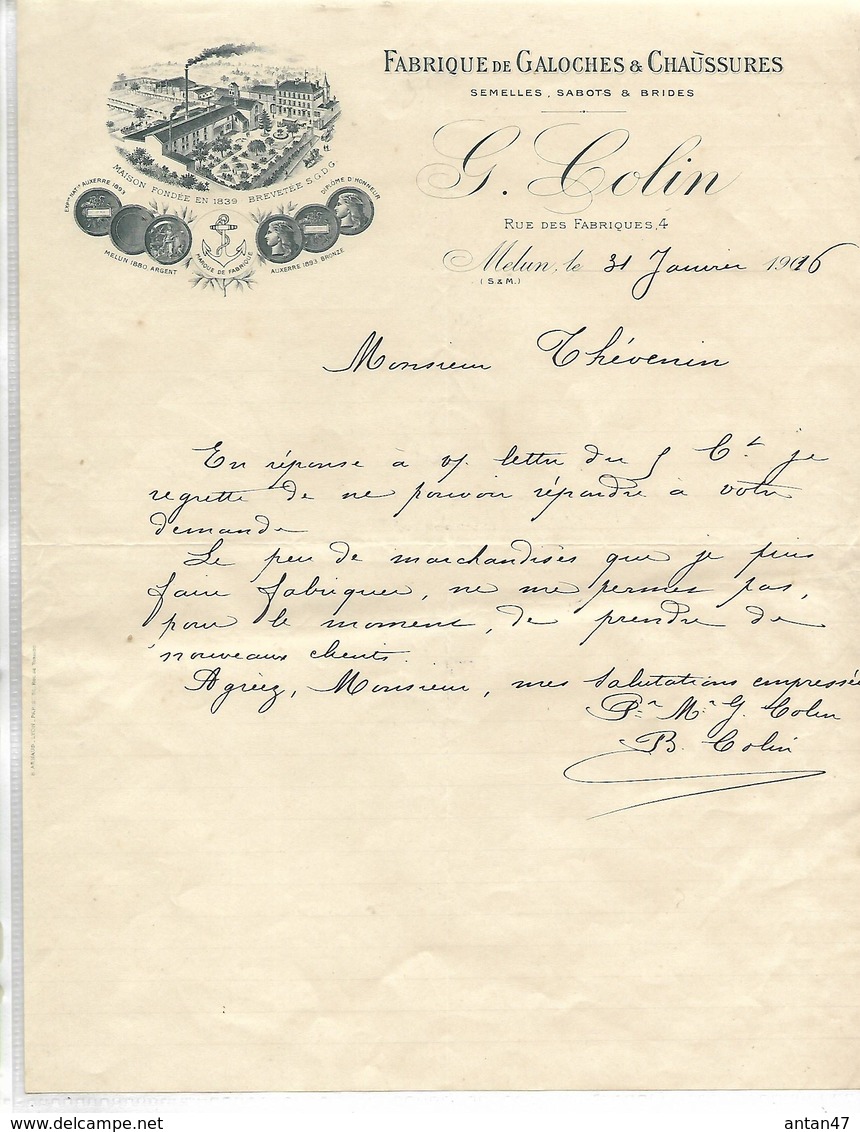 FABRIQUE DE GALOCHES & CHAUSSURES
SEMELLES, SABOTS & BRIDES
G. Colin
RUE DES FABRIQUES, 4
Melun, le 31 Janvier 1916
(S & M.)
MAISON FONDÉE EN 1839 BREVETÉE S.G.D.G.
AUXERRE 1893
DIPLÔME D'HONNEUR
MELUN 1880, ARGENT
MARQUE DE FABRIQUE
AUXERRE 1893 BRONZE
Monsieur Thévenin
En réponse à v/ lettre du 5 Ct je
regrette de ne pouvoir répondre à votre
demande
Le peu de marchandises que je puis
faire fabriquer, ne me permet pas,
pour le moment, de prendre de
nouveaux clients.
Agréez, Monsieur, mes salutations empressée
Pr Mr G. Colin
B. Colin
www.delcampe.net
antan47